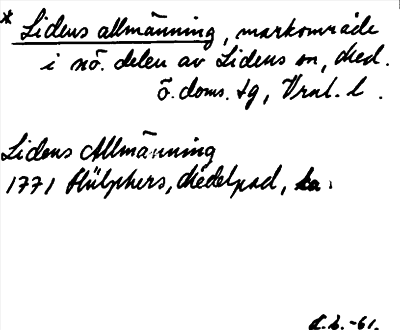 * Lidens allmänning, markområde
i nö. delen av Lidens sn, Med.
ö. doms. tg, Vrnl. l.
Lidens Allmänning
1771 Hülphers, Medelpad,
-61.